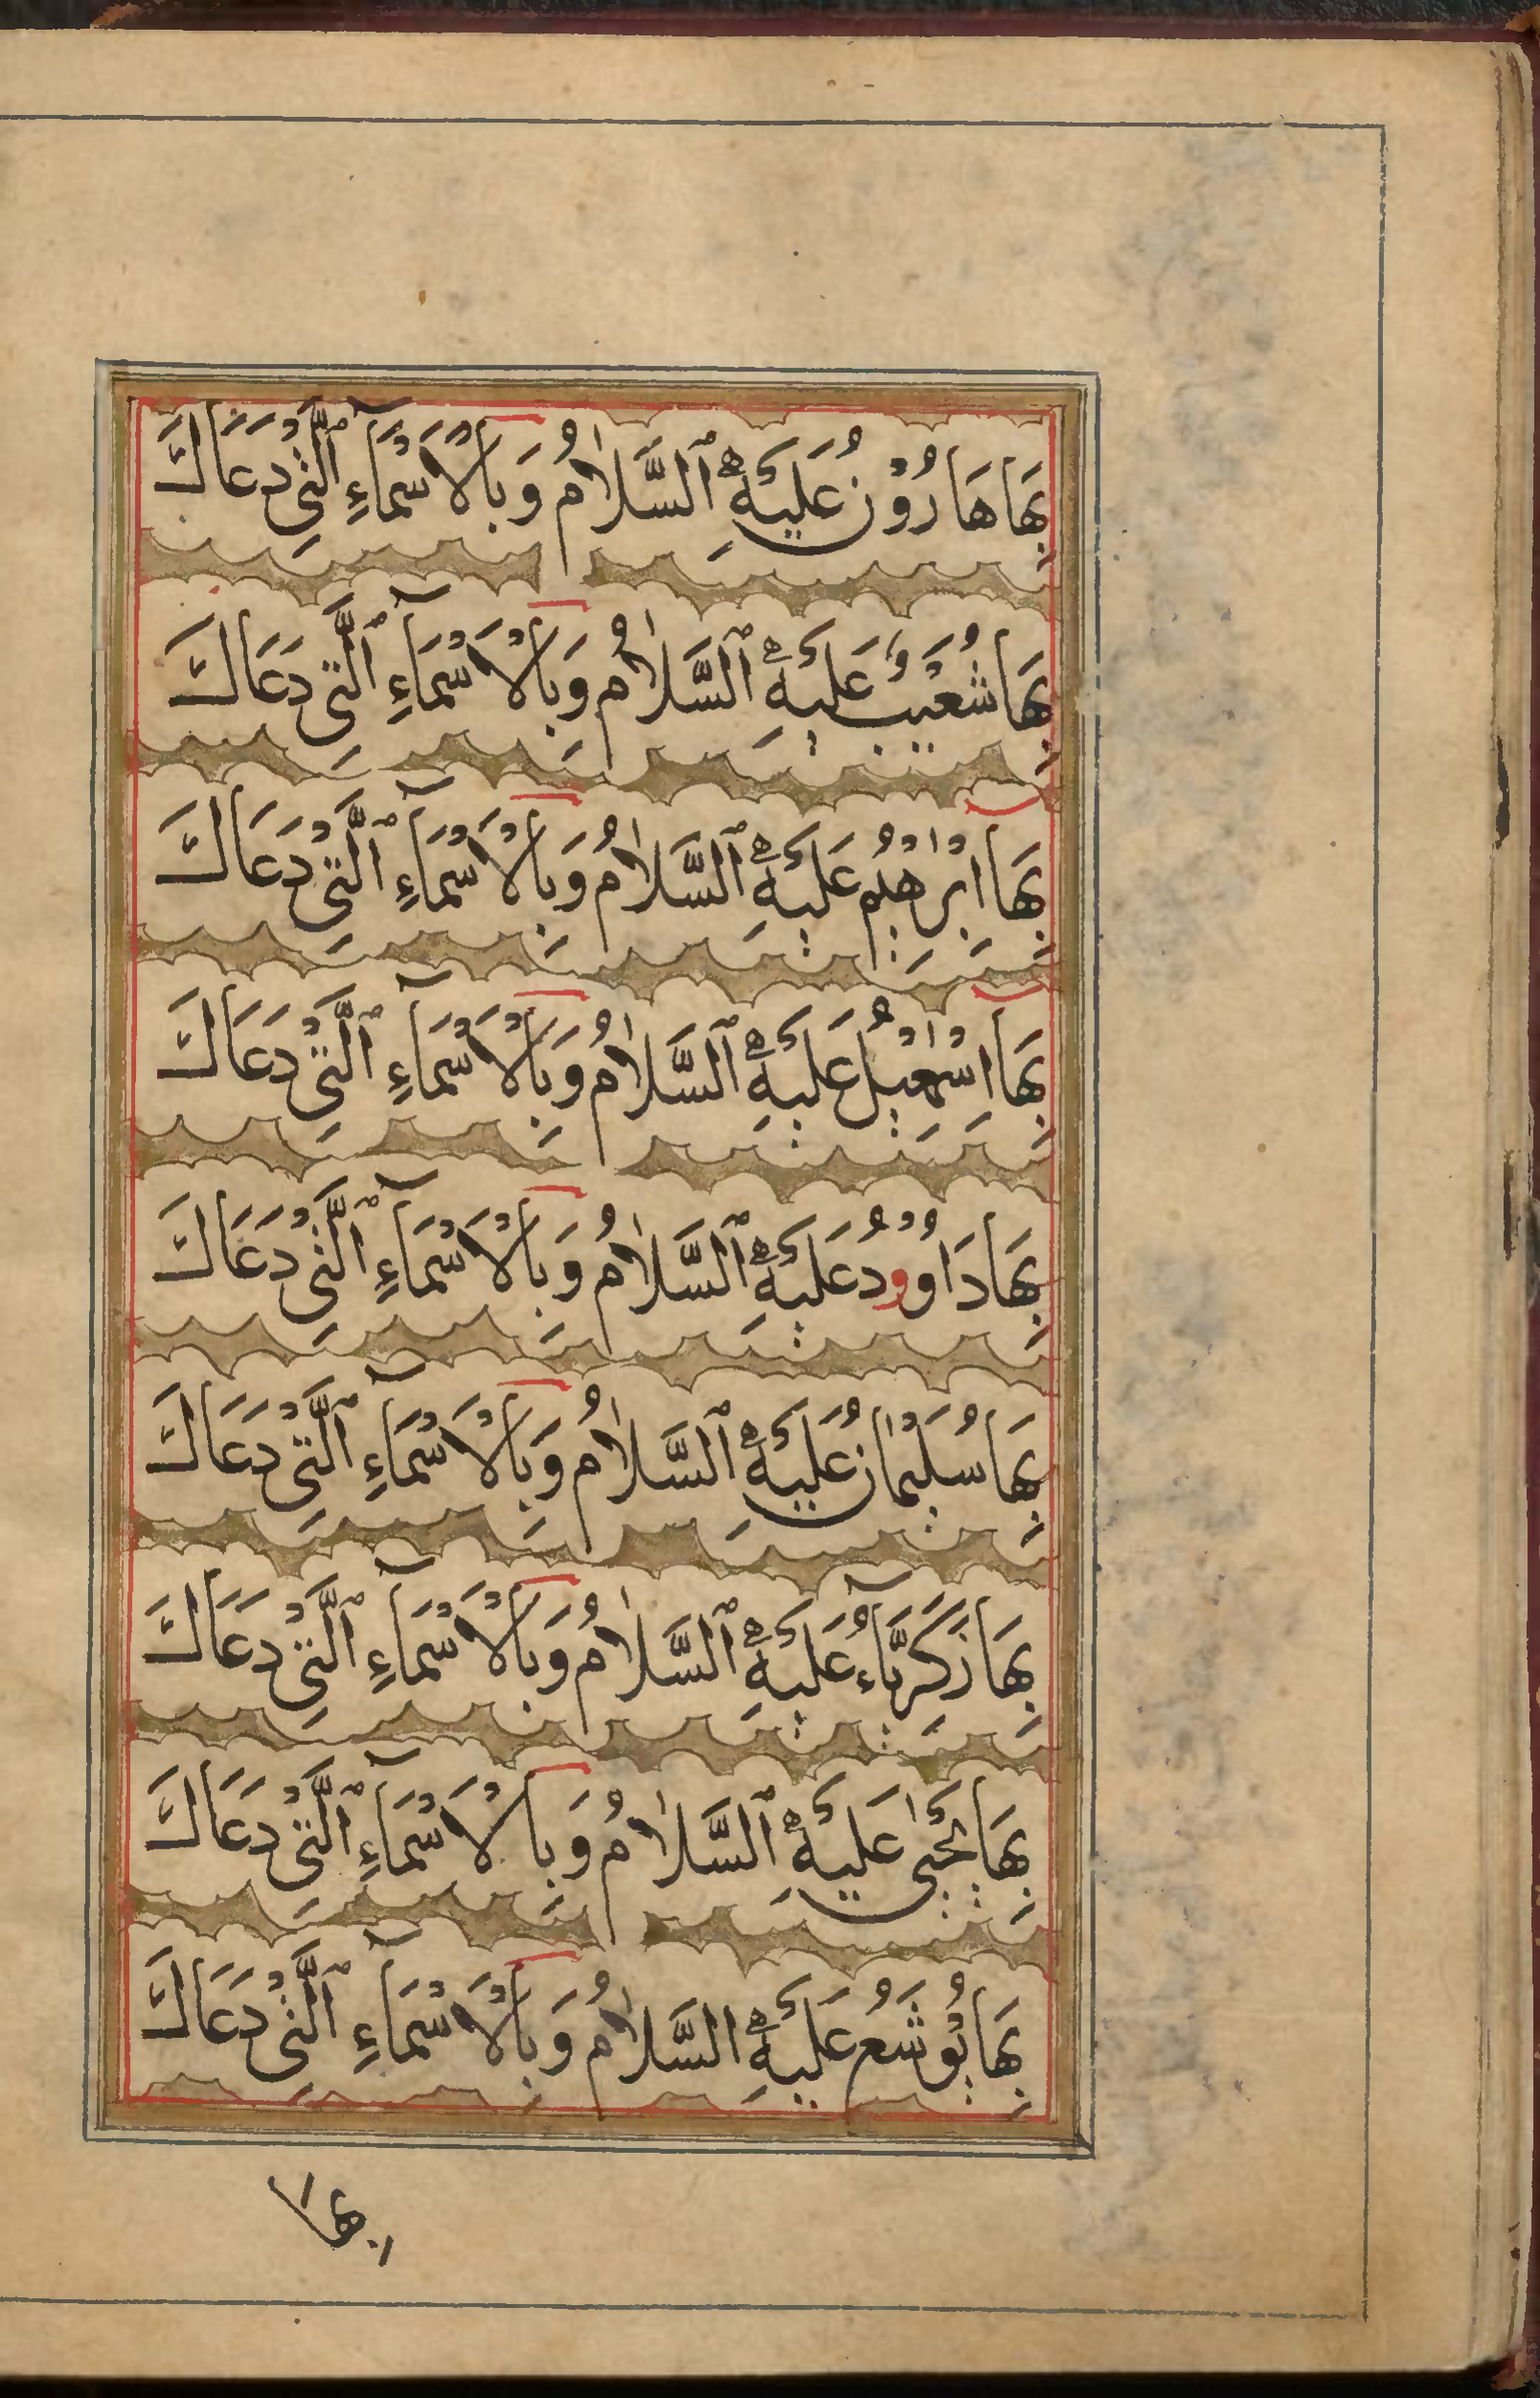 بِهَا هَارُوْنُ عَلَيْهِ ٱلسَّلَامُ وَبِالْاَسْمَآءِ ٱلَّتِيْ دَعَاكَ
بِهَا شُعَيْبُ عَلَيْهِ ٱلسَّلَامُ وَبِالْاَسْمَآءِ ٱلَّتِيْ دَعَاكَ
بِهَا اِبْرٰهِيْمُ عَلَيْهِ ٱلسَّلَامُ وَبِالْاَسْمَآءِ ٱلَّتِيْ دَعَاكَ
بِهَا اِسْمٰعِيْلُ عَلَيْهِ ٱلسَّلَامُ وَبِالْاَسْمَآءِ ٱلَّتِيْ دَعَاكَ
بِهَا دَاوُوْدُ عَلَيْهِ ٱلسَّلَامُ وَبِالْاَسْمَآءِ ٱلَّتِيْ دَعَاكَ
بِهَا سُلَيْمَانُ عَلَيْهِ ٱلسَّلَامُ وَبِالْاَسْمَآءِ ٱلَّتِيْ دَعَاكَ
بِهَا زَكَرِيَّآءُ عَلَيْهِ ٱلسَّلَامُ وَبِالْاَسْمَآءِ ٱلَّتِيْ دَعَاكَ
بِهَا يَحْيٰى عَلَيْهِ ٱلسَّلَامُ وَبِالْاَسْمَآءِ ٱلَّتِيْ دَعَاكَ
بِهَا يُوْشَعُ عَلَيْهِ السَّلَامُ وَبِالْاَسْمَآءِ ٱلَّتِيْ دَعَاكَ
بِهَا